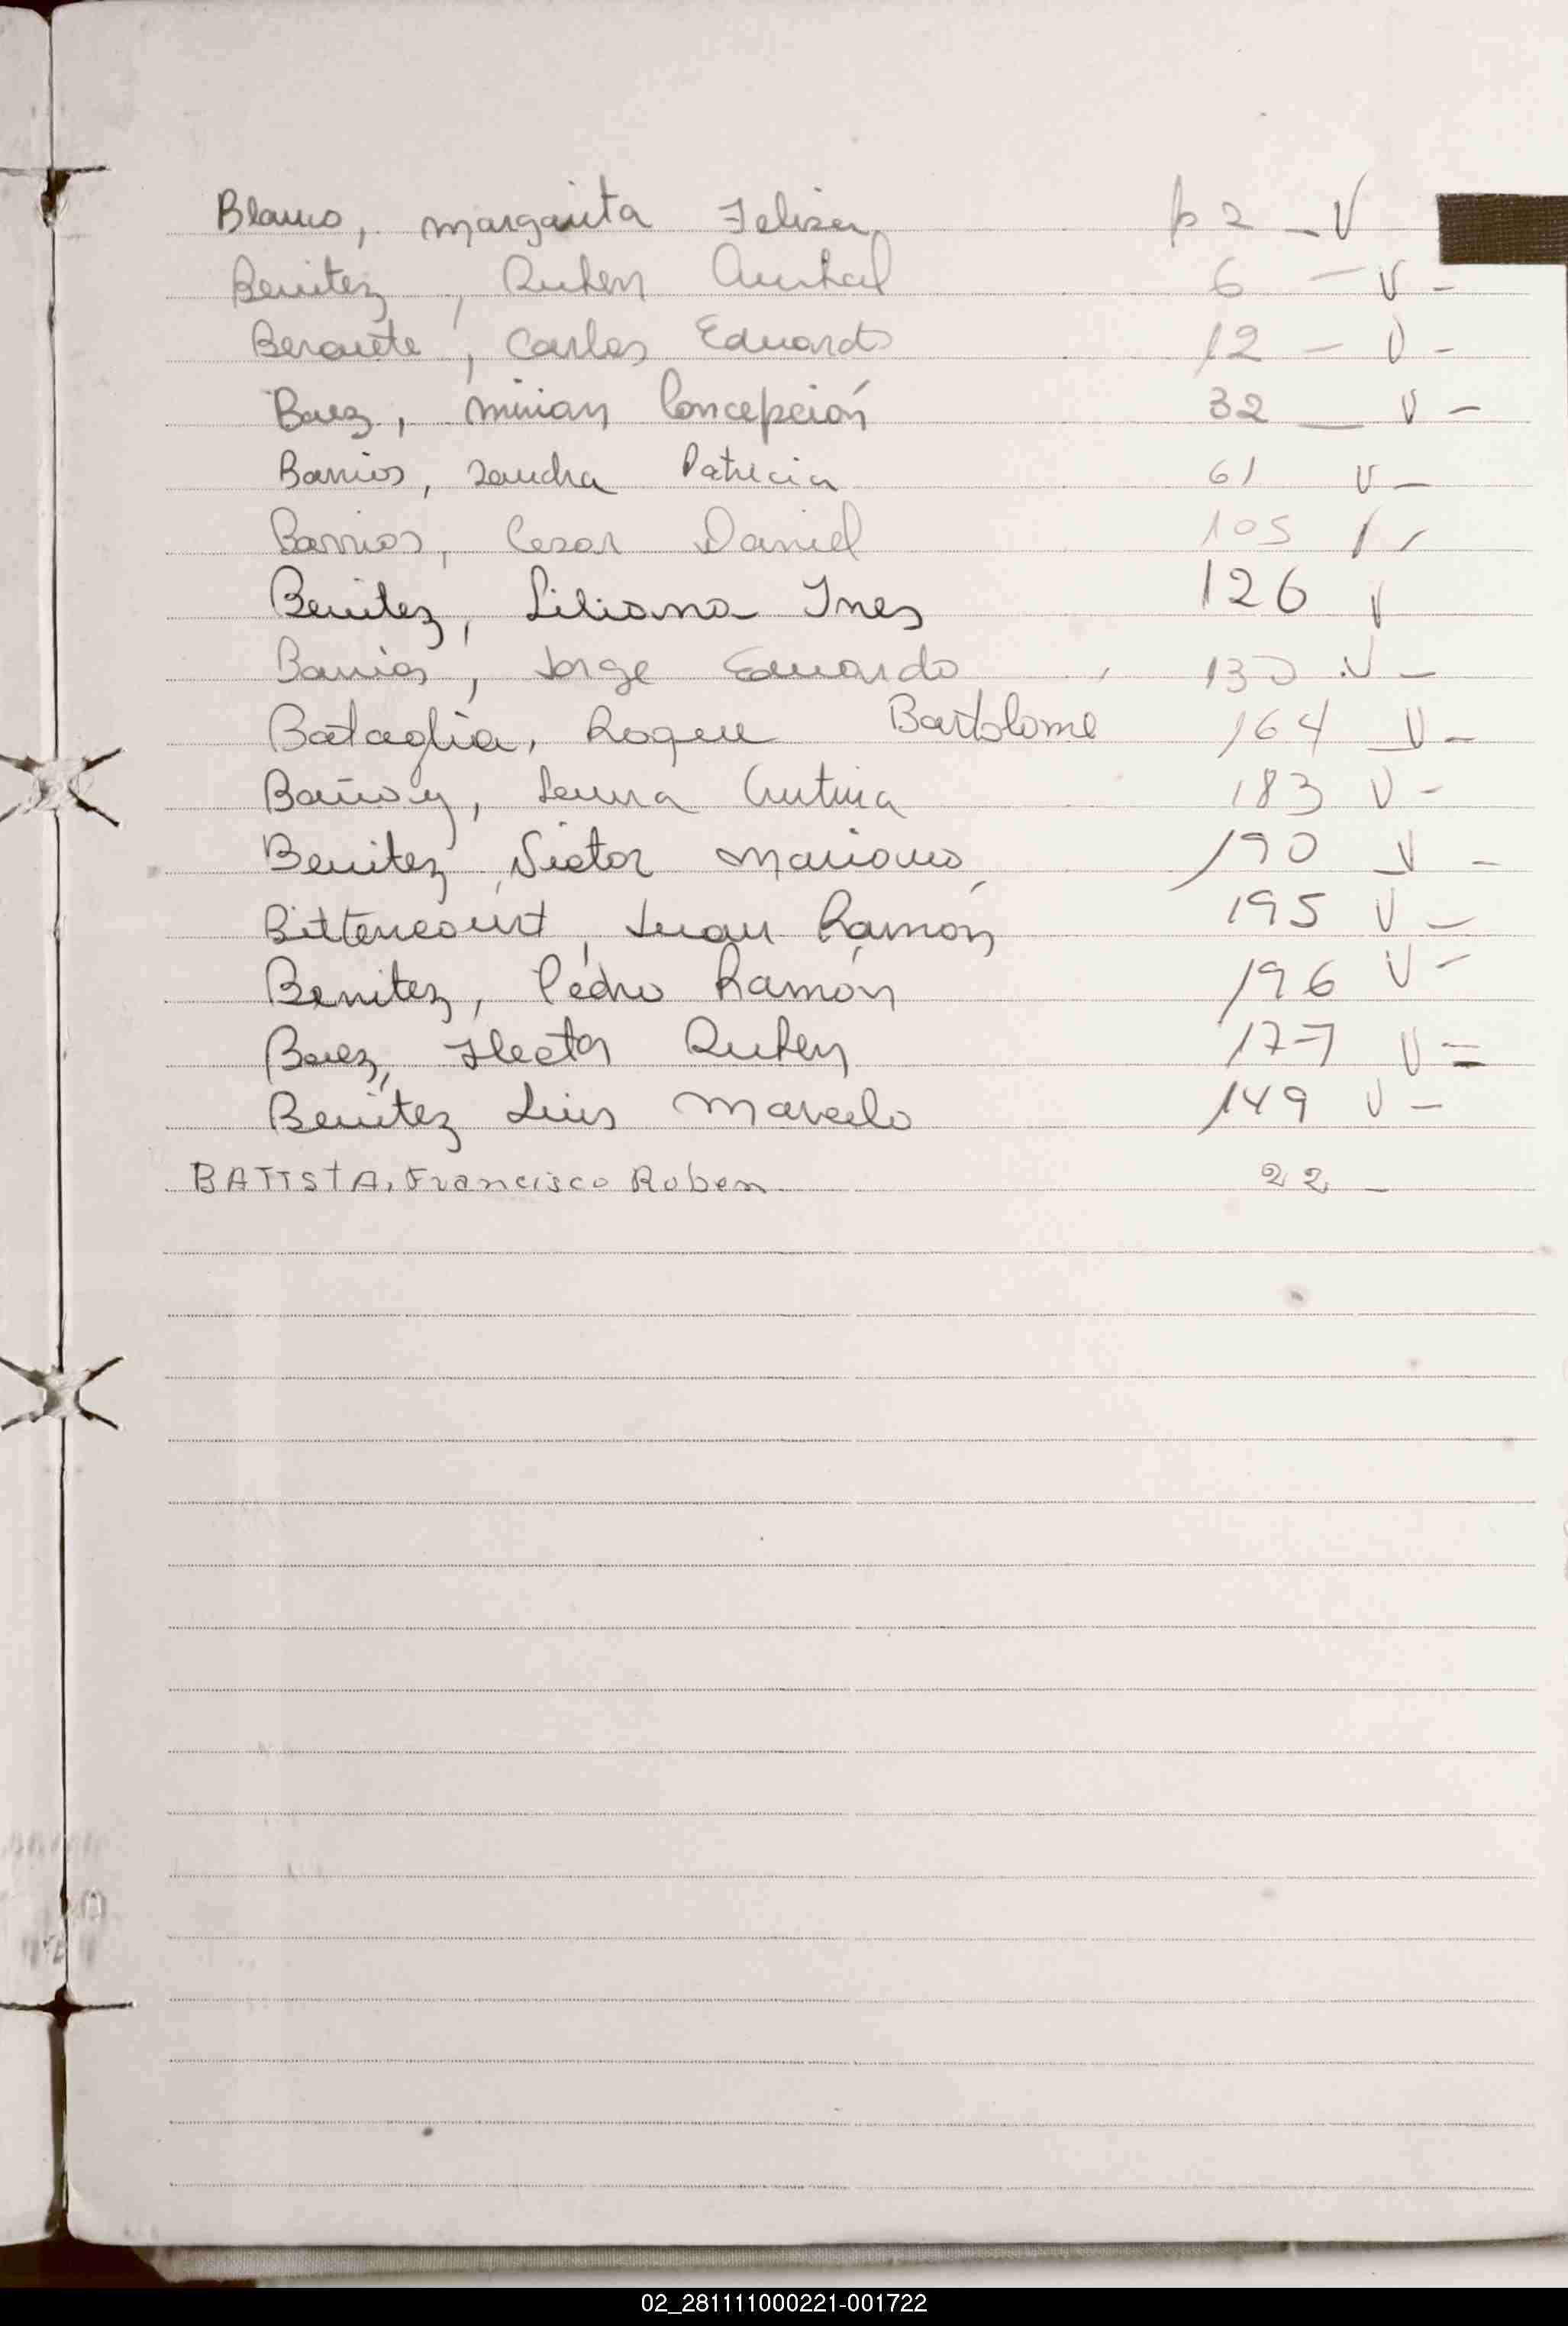 Blanco, Margarita Feliza p 2 - V
Benitez, Ruben Anibal 6 - V -
Berouete, Carlos Eduardo 12 - V -
Baez, Mirian Concepción 32 - V -
Barrios, Sandra Patricia 61 V -
Barrios, Cesar Daniel 105
Benitez, Liliana Ines 126 V
Barrios, Jorge Eduardo 130 V -
Bataglia, Roque Bartolome 164 V -
Laura Cristina 183 V -
Benitez, Victor Mariano 190 V -
Bittencourt, Juan Ramón 195 V -
Benitez, Pedro Ramón 196 V -
Baez, Hector Ruben 177 V =
Benitez Luis Marcelo 149 V -
BATISTA, Francisco Ruben 22 -
02_281111000221-001722